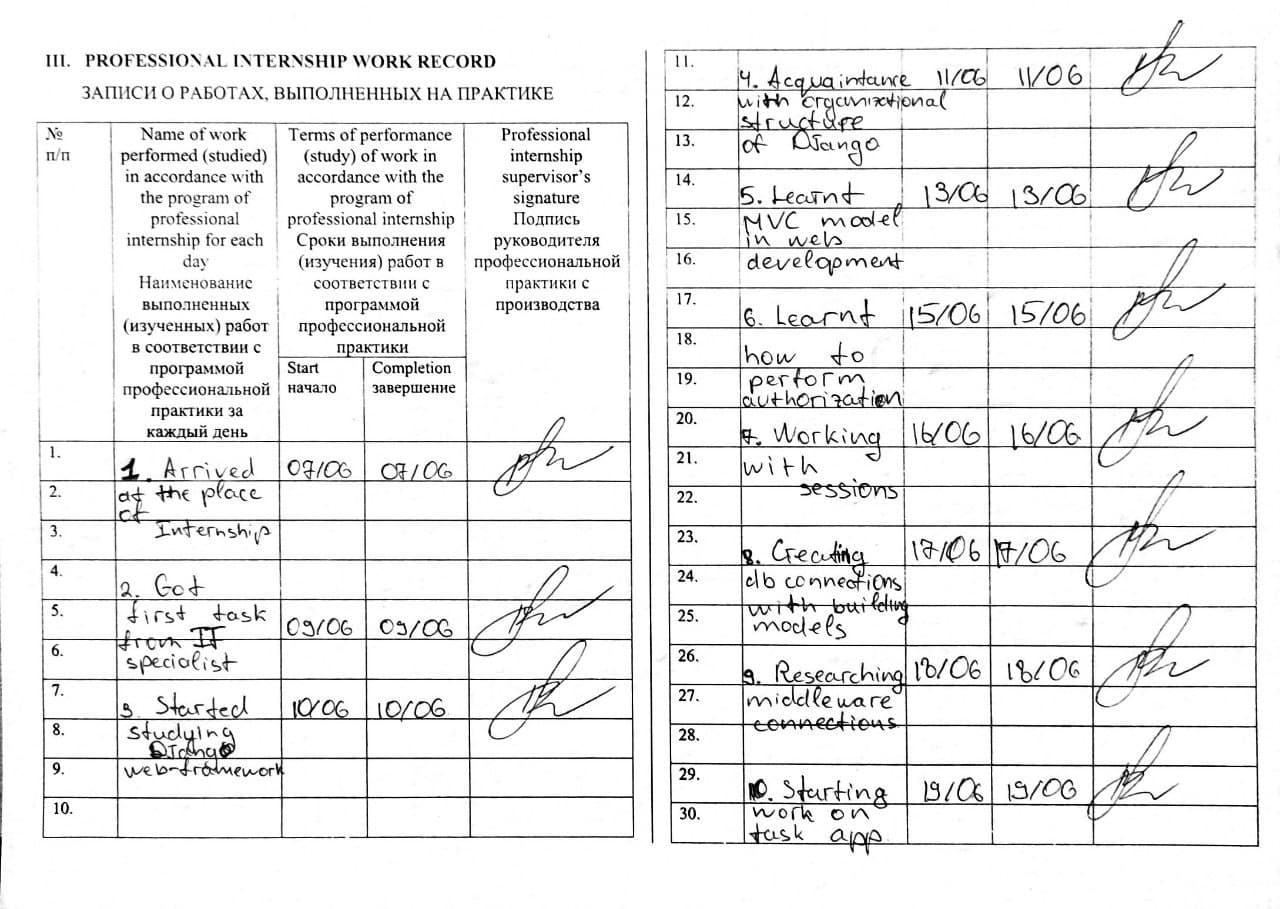 III. PROFESSIONAL INTERNSHIP WORK RECORD
ЗАПИСИ О РАБОТАХ, ВЫПОЛНЕННЫХ НА ПРАКТИКЕ
№
п/п
Name of work
performed (studied)
in accordance with
the program of
professional
internship for each
day
Наименование
выполненных
(изученных) работ
в соответствии с
программой
профессиональной
практики за
каждый день
Terms of performance
(study) of work in
accordance with the
program of
professional internship
Сроки выполнения
(изучения) работ в
соответствии с
программой
профессиональной
практики
Start
начало
Completion
завершение
Professional
internship
supervisor's
signature
Подпись
руководителя
профессиональной
практики с
производства
1.
1. Arrived 07/06 07/06
2.
at the place
of
3.
Internship
4.
2. Got
5.
first task
09/06 09/06
from IT
6.
specialist
7.
3 Started 10/06 10/06
8.
studying
Django
9.
web-framework
10.
11.
4. Acquaintance 11/06 11/06
12.
with organizational
structure
13.
of Django
14.
5. Learnt 13/06 13/06
15.
MVC model
in web
16.
development
17.
6. Learnt 15/06 15/06
18.
how to
19.
perform
authorization
20.
7. Working 16/06 16/06
21.
with
sessions
22.
23.
8. Creating 17/06 17/06
24.
db connections
with building
25.
models
26.
9. Researching 18/06 18/06
27.
middleware
connections
28.
29.
10. Starting 19/06 19/06
30.
work on
task app